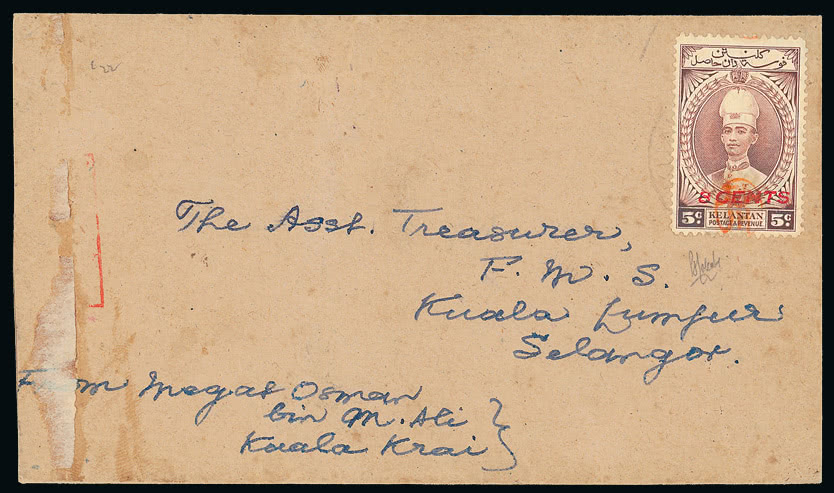 كلنتن
8 CENTS
5c KELANTAN 5c
POSTAGE & REVENUE
The Asst. Treasurer,
F. M. S.
Kuala Lumpur
Selangor.
From Megat Osman
bin M. Ali
Kuala Krai